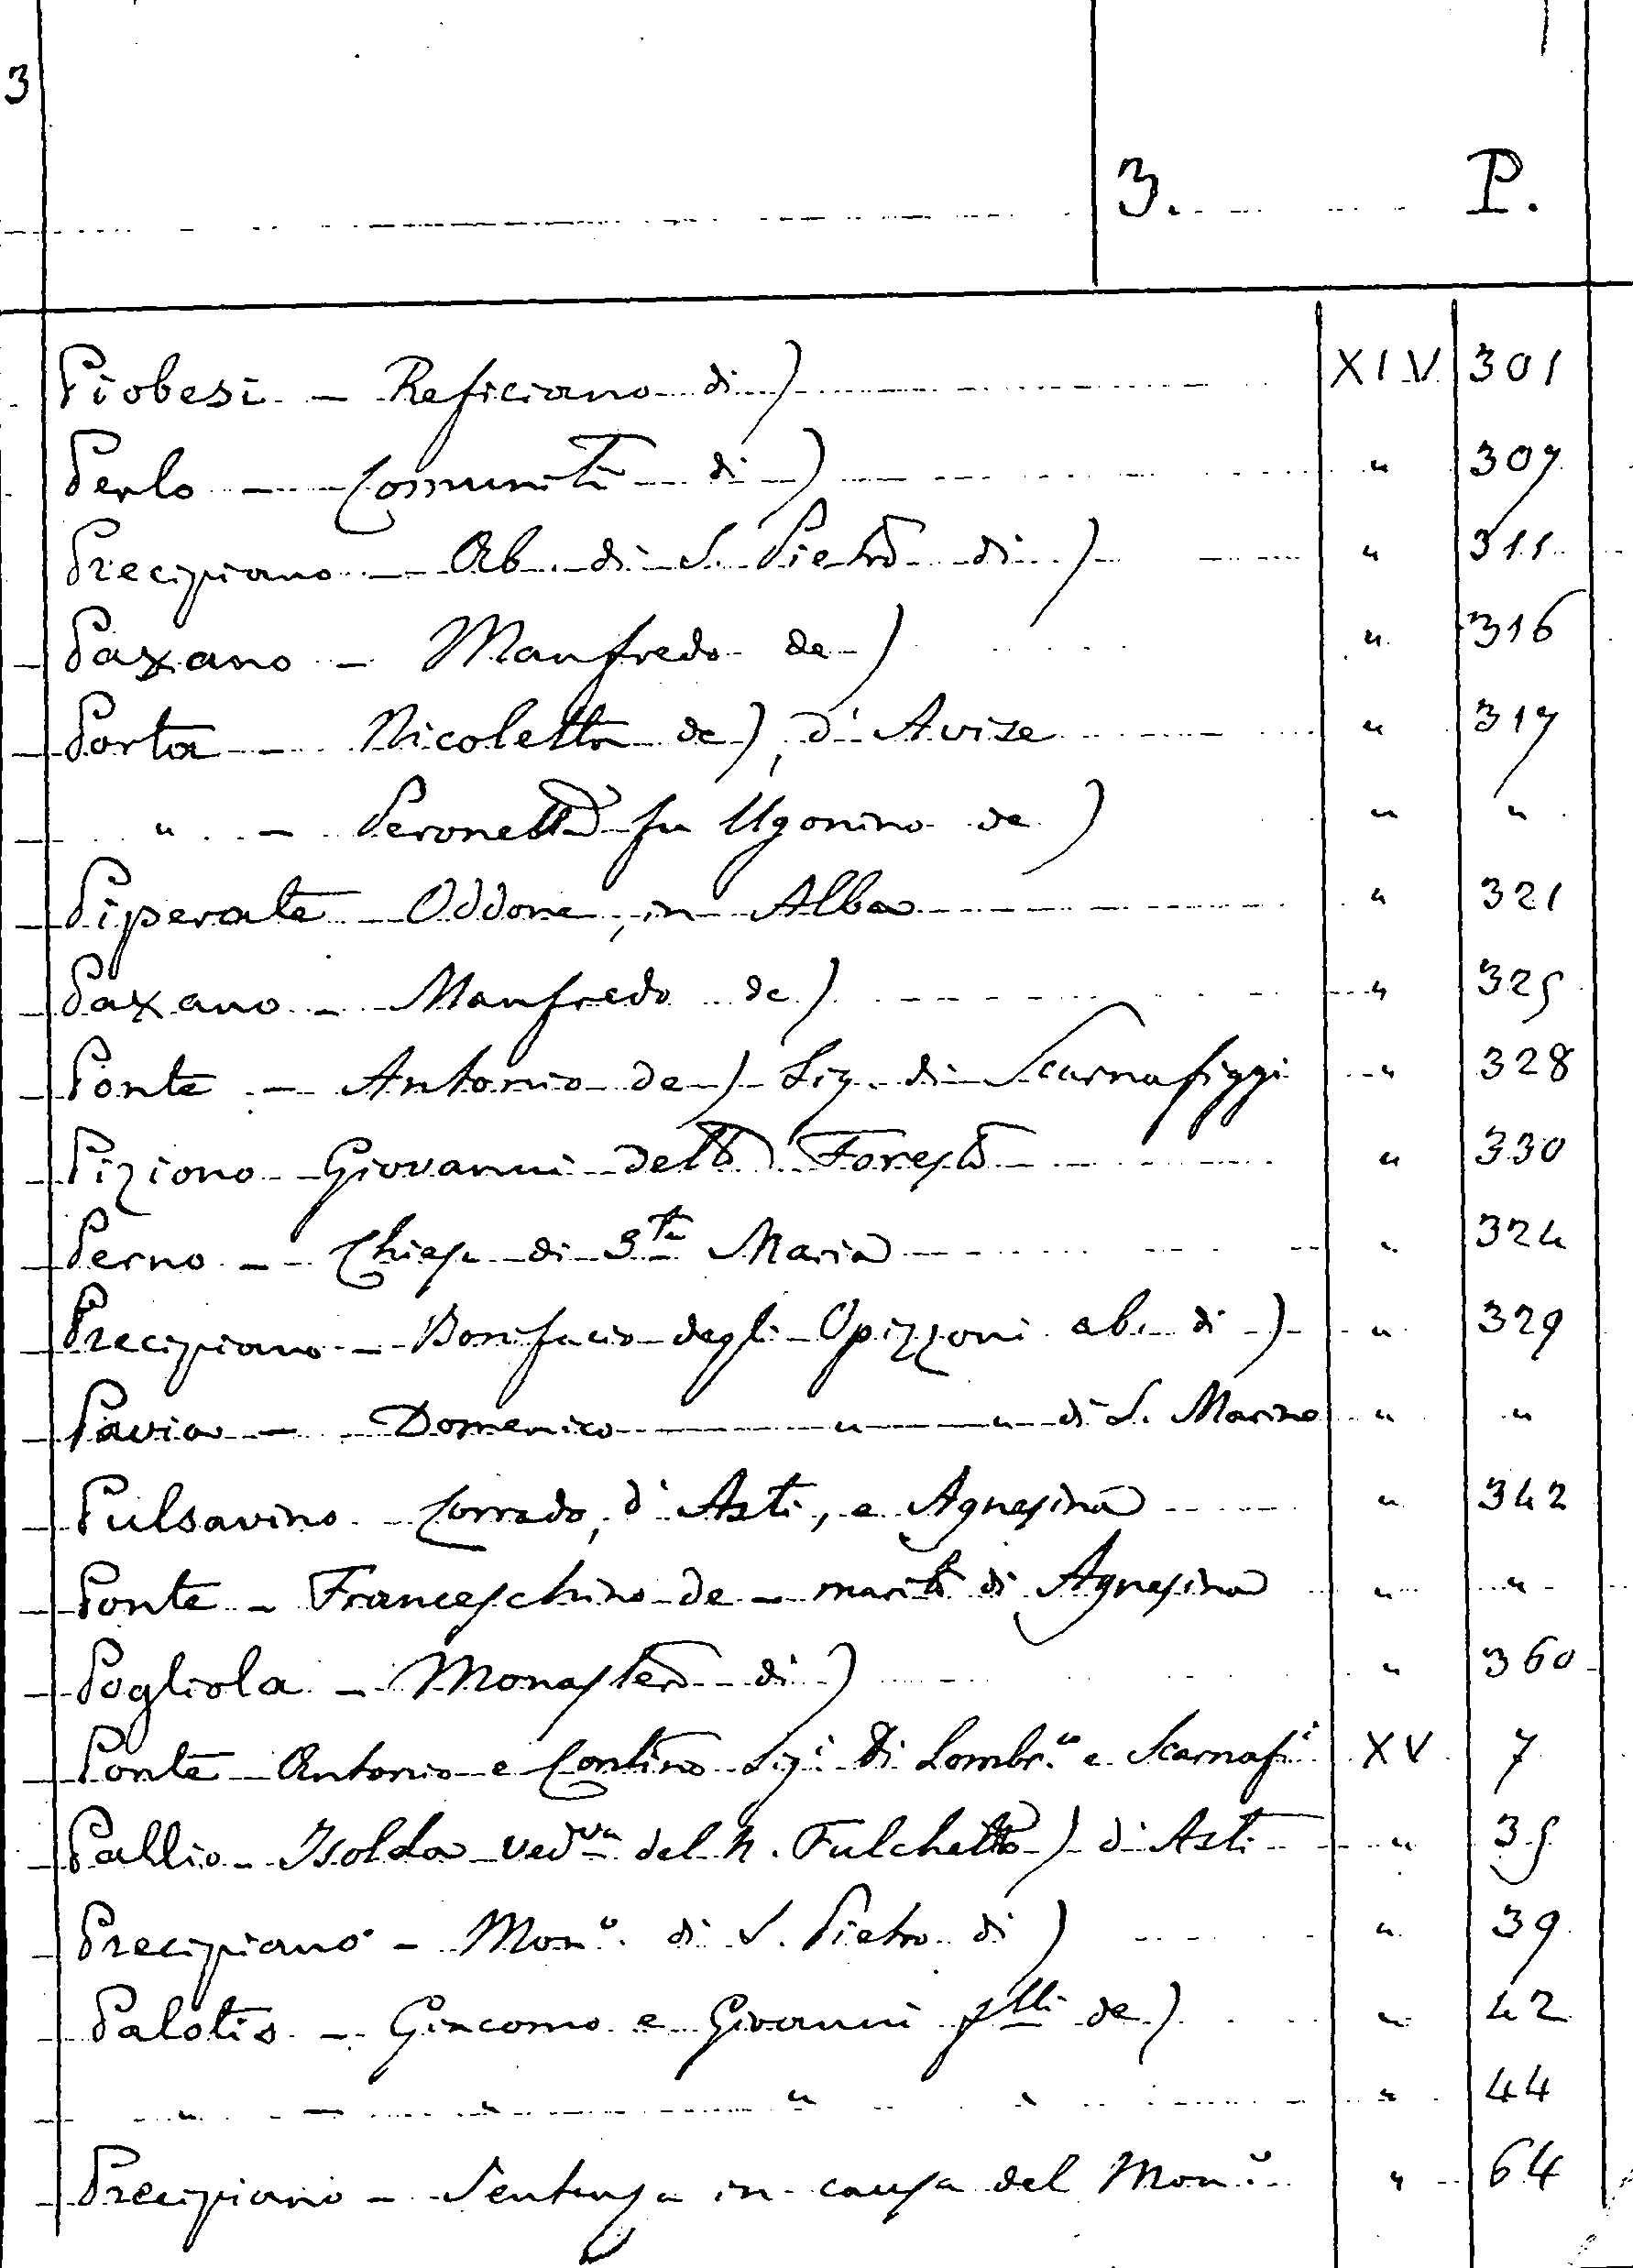 3
3. P.
Piobesi - Reficiano di) XIV 301
Perlo - Comunità di) " 307
Precipiano - Ab. di S. Pietro di) " 311
Paxano - Manfredo de) " 316
Porta - Nicoletta de), d'Avize " 317
" - Peronetta fu Ugonino de) " "
Piperate - Oddone, in Alba " 321
Paxano - Manfredo de) " 325
Ponte - Antonio de) Sig. di Scarnafiggi " 328
Piziono - Giovanni della Foresta " 330
Perno - Chiesa di Sta Maria " 324
Precipiano - Bonifacio degli Opizzoni ab. di) " 329
Pavia - Domenico " " di S. Marino " "
Pulsavino - Corrado, d'Asti, e Agnesina " 342
Ponte - Franceschino de - marito di Agnesina " "
Pogliola - Monastero di) " 360
Ponte - Antonio e Contino Sigi di Lombr.co e Scarnafi XV 7
Pallio - Isolda vedva del N. Fulchetto) d'Asti " 35
Precipiano - Mono. di S. Pietro di) " 39
Palotis - Giacomo e Giovanni flli de) " 42
" - " " " " 44
Precipiano - Sentenza in causa del Mono. " 64